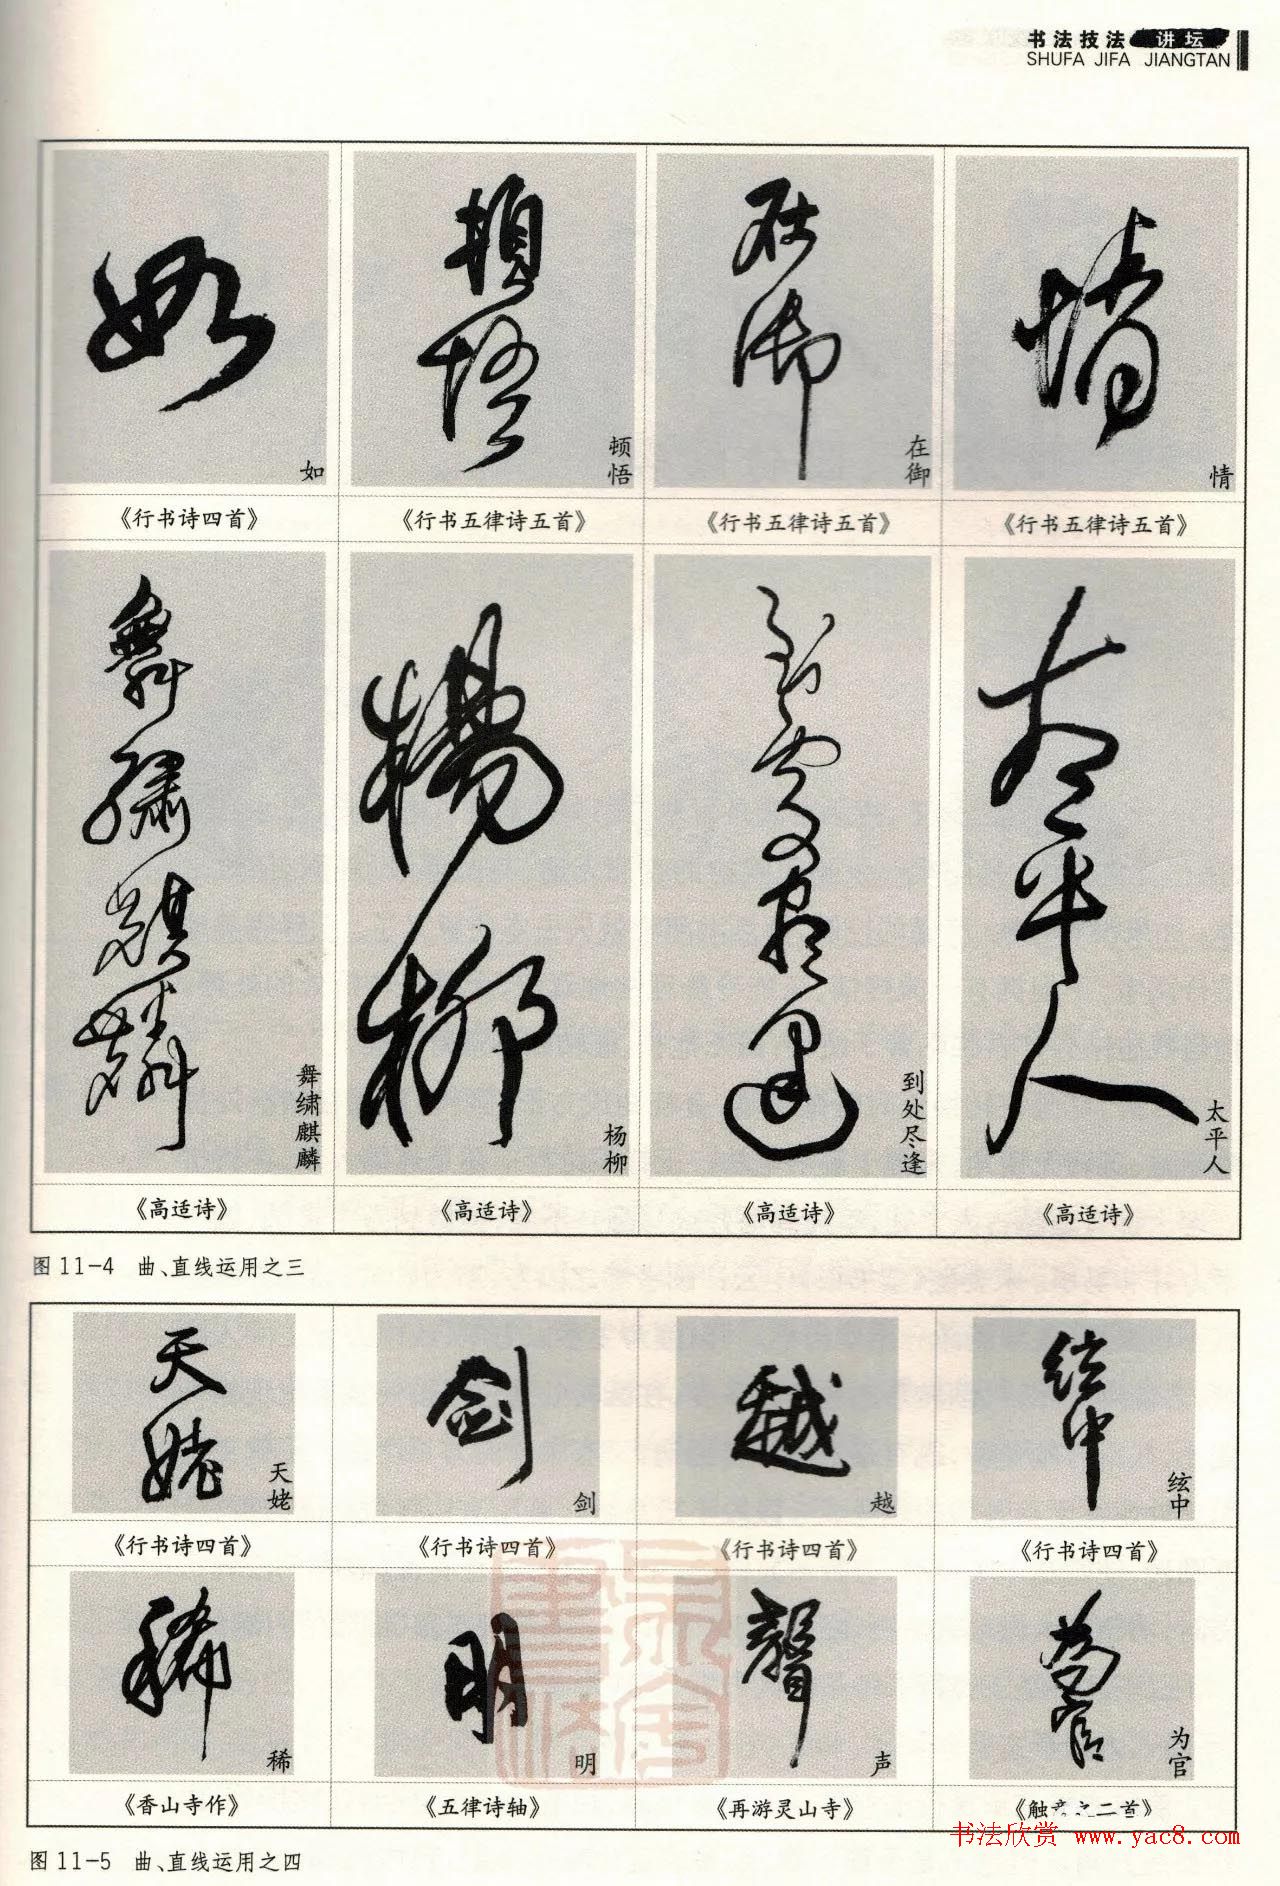 书法技法 讲坛
SHUFA JIFA JIANGTAN
如
顿悟
在御
情
《行书诗四首》
《行书五律诗五首》
《行书五律诗五首》
《行书五律诗五首》
舞绣麒麟
杨柳
到处尽逢
太平人
《高适诗》
《高适诗》
《高适诗》
《高适诗》
图 11-4 曲、直线运用之三
天姥
剑
越
绞中
《行书诗四首》
《行书诗四首》
《行书诗四首》
《行书诗四首》
稀
明
声
为官
《香山寺作》
《五律诗轴》
《再游灵山寺》
之二首》
书法欣赏 www.yac8.com
图 11-5 曲、直线运用之四